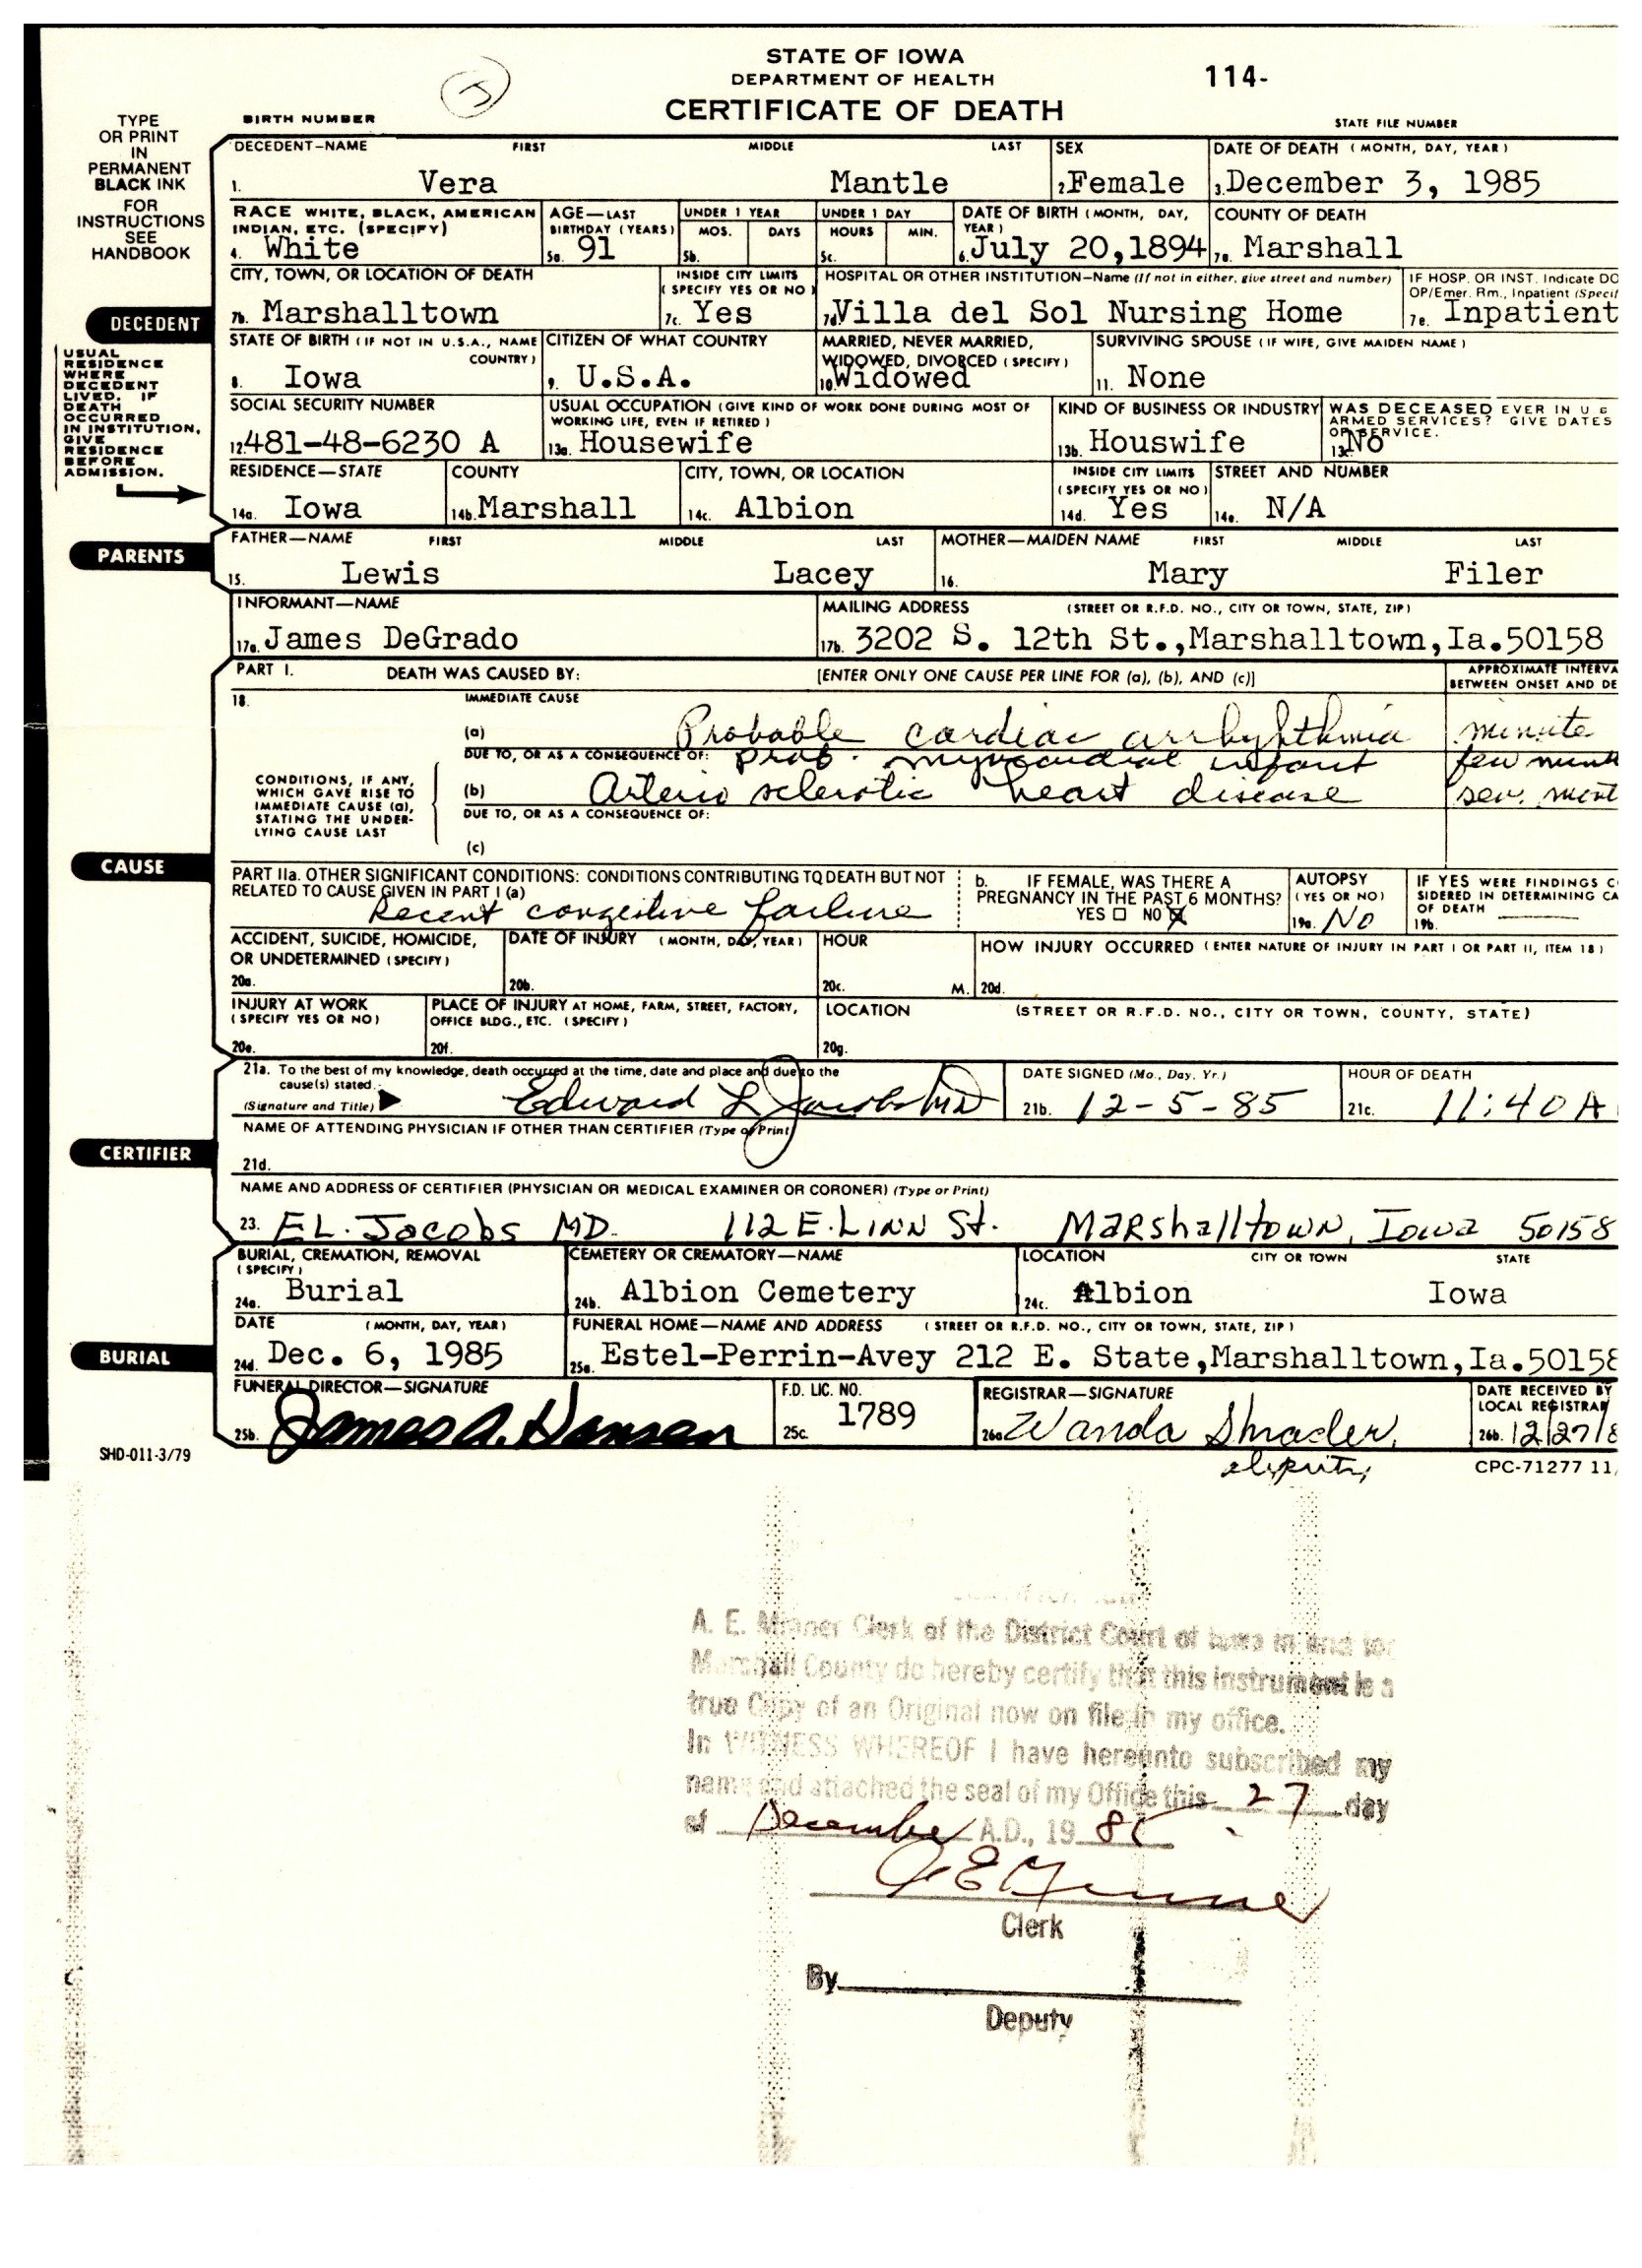 STATE OF IOWA
DEPARTMENT OF HEALTH
CERTIFICATE OF DEATH
114-
BIRTH NUMBER
STATE FILE NUMBER
TYPE
OR PRINT
IN
PERMANENT
BLACK INK
FOR
INSTRUCTIONS
SEE
HANDBOOK
DECEDENT—NAME FIRST MIDDLE LAST
1. Vera Mantle
SEX
2. Female
DATE OF DEATH (MONTH, DAY, YEAR)
3. December 3, 1985
RACE WHITE, BLACK, AMERICAN
INDIAN, ETC. (SPECIFY)
4. White
AGE—LAST
BIRTHDAY (YEARS)
5a. 91
UNDER 1 YEAR
MOS. DAYS
5b.
UNDER 1 DAY
HOURS MIN.
5c.
DATE OF BIRTH (MONTH, DAY,
YEAR)
6. July 20,1894
COUNTY OF DEATH
7a. Marshall
CITY, TOWN, OR LOCATION OF DEATH
7b. Marshalltown
INSIDE CITY LIMITS
(SPECIFY YES OR NO)
7c. Yes
HOSPITAL OR OTHER INSTITUTION—Name (If not in either, give street and number)
7d. Villa del Sol Nursing Home
IF HOSP. OR INST. Indicate DO
OP/Emer. Rm., Inpatient (Specif
7e. Inpatient
DECEDENT
USUAL
RESIDENCE
WHERE
DECEDENT
LIVED. IF
DEATH
OCCURRED
IN INSTITUTION,
GIVE
RESIDENCE
BEFORE
ADMISSION.
STATE OF BIRTH (IF NOT IN U.S.A., NAME
COUNTRY)
8. Iowa
CITIZEN OF WHAT COUNTRY
9. U.S.A.
MARRIED, NEVER MARRIED,
WIDOWED, DIVORCED (SPECIFY)
10. Widowed
SURVIVING SPOUSE (IF WIFE, GIVE MAIDEN NAME)
11. None
SOCIAL SECURITY NUMBER
12. 481-48-6230 A
USUAL OCCUPATION (GIVE KIND OF WORK DONE DURING MOST OF
WORKING LIFE, EVEN IF RETIRED)
13a. Housewife
KIND OF BUSINESS OR INDUSTRY
13b. Houswife
WAS DECEASED EVER IN U S
ARMED SERVICES? GIVE DATES
OF SERVICE.
13c. No
RESIDENCE—STATE
14a. Iowa
COUNTY
14b. Marshall
CITY, TOWN, OR LOCATION
14c. Albion
INSIDE CITY LIMITS
(SPECIFY YES OR NO)
14d. Yes
STREET AND NUMBER
14e. N/A
PARENTS
FATHER—NAME FIRST MIDDLE LAST
15. Lewis Lacey
MOTHER—MAIDEN NAME FIRST MIDDLE LAST
16. Mary Filer
INFORMANT—NAME
17a. James DeGrado
MAILING ADDRESS (STREET OR R.F.D. NO., CITY OR TOWN, STATE, ZIP)
17b. 3202 S. 12th St.,Marshalltown,Ia.50158
PART I. DEATH WAS CAUSED BY: [ENTER ONLY ONE CAUSE PER LINE FOR (a), (b), AND (c)]
APPROXIMATE INTERVA
BETWEEN ONSET AND DE
18. IMMEDIATE CAUSE
(a) Probable cardiac arrhythmia minute
DUE TO, OR AS A CONSEQUENCE OF: prob. myocardial infarct few
CONDITIONS, IF ANY,
WHICH GAVE RISE TO
IMMEDIATE CAUSE (a),
STATING THE UNDER-
LYING CAUSE LAST
(b) Arterio sclerotic heart disease sev.
DUE TO, OR AS A CONSEQUENCE OF:
(c)
CAUSE
PART IIa. OTHER SIGNIFICANT CONDITIONS: CONDITIONS CONTRIBUTING TO DEATH BUT NOT
RELATED TO CAUSE GIVEN IN PART I (a)
Recent congestive failure
b. IF FEMALE, WAS THERE A
PREGNANCY IN THE PAST 6 MONTHS?
YES ☐ NO ☒
AUTOPSY
(YES OR NO)
19a. No
IF YES WERE FINDINGS C
SIDERED IN DETERMINING CA
OF DEATH
19b.
ACCIDENT, SUICIDE, HOMICIDE,
OR UNDETERMINED (SPECIFY)
20a.
DATE OF INJURY (MONTH, DAY, YEAR)
20b.
HOUR
20c. M.
HOW INJURY OCCURRED (ENTER NATURE OF INJURY IN PART I OR PART II, ITEM 18)
20d.
INJURY AT WORK
(SPECIFY YES OR NO)
20e.
PLACE OF INJURY AT HOME, FARM, STREET, FACTORY,
OFFICE BLDG., ETC. (SPECIFY)
20f.
LOCATION (STREET OR R.F.D. NO., CITY OR TOWN, COUNTY, STATE)
20g.
21a. To the best of my knowledge, death occurred at the time, date and place and due to the
cause(s) stated.
(Signature and Title) Edward L Jacobs MD
DATE SIGNED (Mo., Day, Yr.)
21b. 12-5-85
HOUR OF DEATH
21c. 11:40 A
NAME OF ATTENDING PHYSICIAN IF OTHER THAN CERTIFIER (Type or Print)
21d.
CERTIFIER
NAME AND ADDRESS OF CERTIFIER (PHYSICIAN OR MEDICAL EXAMINER OR CORONER) (Type or Print)
23. E L. Jacobs MD. 112 E. LINN St. Marshalltown, Iowa 50158
BURIAL, CREMATION, REMOVAL
(SPECIFY)
24a. Burial
CEMETERY OR CREMATORY—NAME
24b. Albion Cemetery
LOCATION CITY OR TOWN STATE
24c. Albion Iowa
BURIAL
DATE (MONTH, DAY, YEAR)
24d. Dec. 6, 1985
FUNERAL HOME—NAME AND ADDRESS (STREET OR R.F.D. NO., CITY OR TOWN, STATE, ZIP)
25a. Estel-Perrin-Avey 212 E. State,Marshalltown,Ia.50158
FUNERAL DIRECTOR—SIGNATURE
25b. James A. Hansen
F.D. LIC. NO.
25c. 1789
REGISTRAR—SIGNATURE
26a. Wanda Shrader,
deputy
DATE RECEIVED BY
LOCAL REGISTRAR
26b. 12/27/8
SHD-011-3/79
CPC-71277 11/
A. E. Clerk of the District Court of Iowa in and for
Marshall County do hereby certify that this instrument is a
true Copy of an Original now on file in my office.
In WITNESS WHEREOF I have hereunto subscribed my
name and attached the seal of my Office this 27 day
of December A.D., 19 85
Clerk
By
Deputy